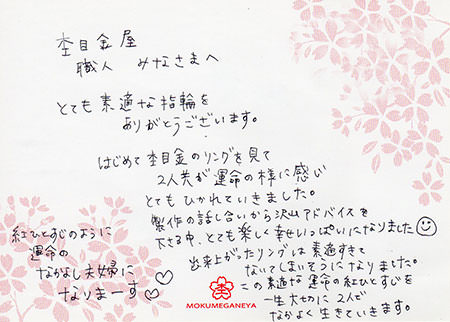 杢目金屋
職人 みなさまへ
とても素適な指輪を
ありがとうございます。
はじめて杢目金のリングを見て
2人共が運命の様に感い
とてもひかれていきました。
製作の話し合いから沢山アドバイスを
下さる中、とても楽しく幸せいっぱいになりました
出来上がったリングは素適すぎて
ないてしまいそうになりました。
この素適な運命の紅ひとすじを
一生大切に2人で
なかよく生きていきます。
紅ひとすじのように
運命の
なかよし夫婦に
なりまーす
MOKUMEGANEYA